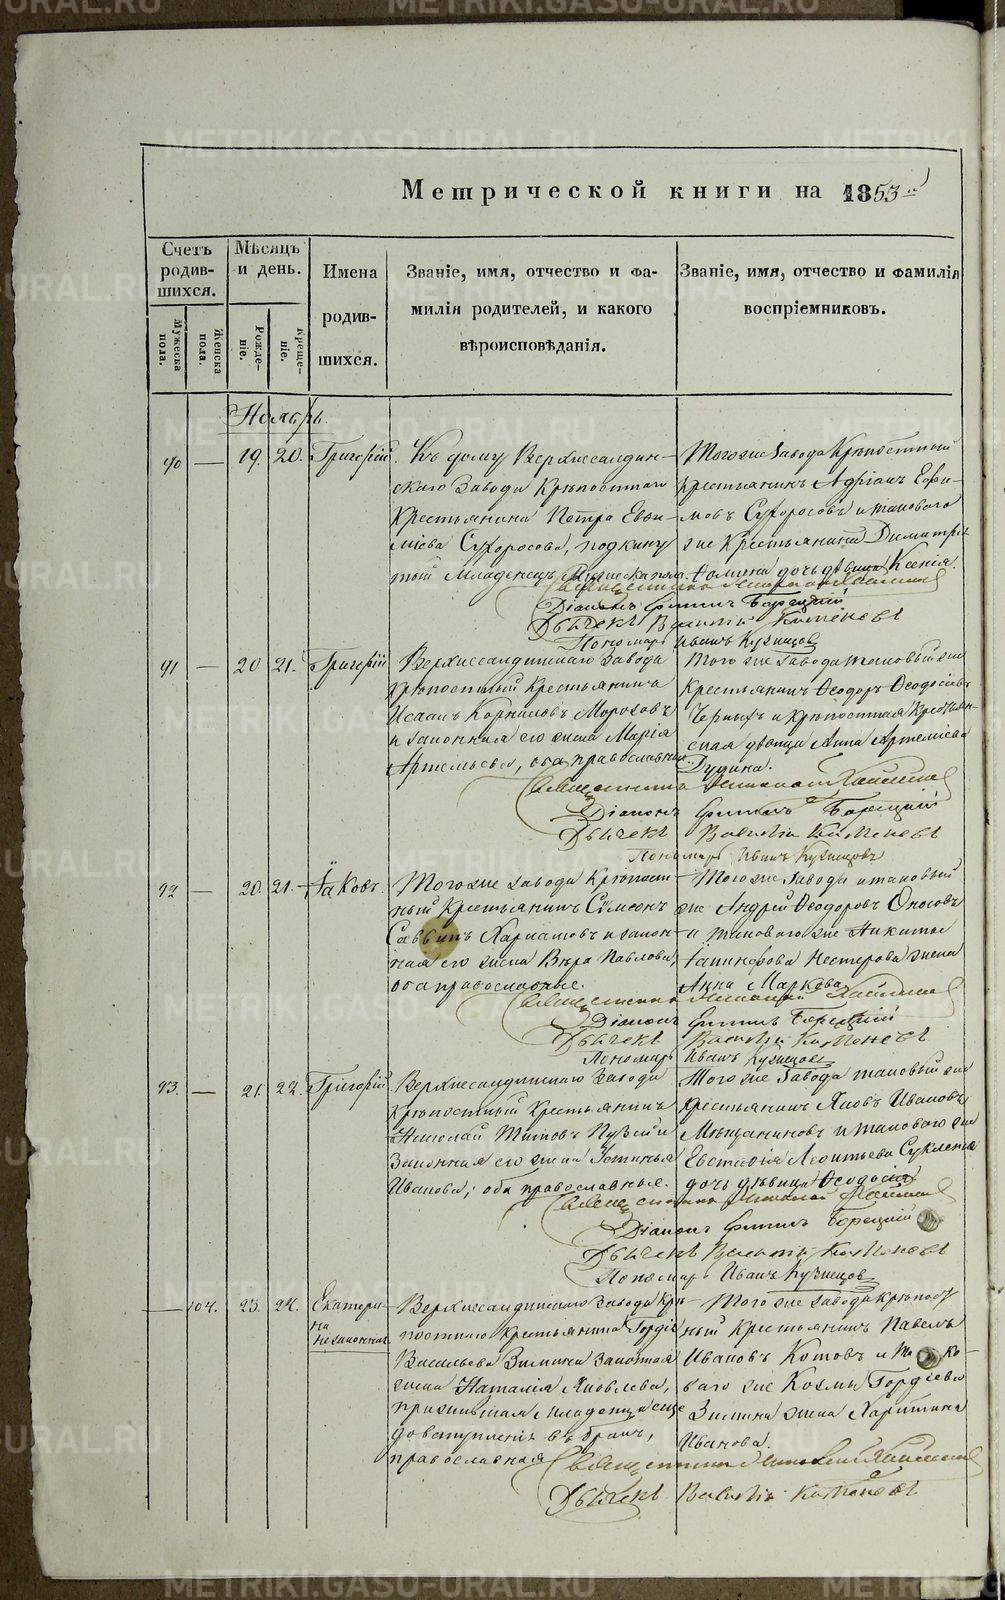 METRIKI.GASO-URAL.RU
Метрической книги на 1853й
Счетъ родив-шихся.
Мѣсяцъ и день.
Имена родив-шихся.
Званіе, имя, отчество и фа-милія родителей, и какого вѣроисповѣданія.
Званіе, имя, отчество и фамилія воспріемниковъ.
Мужеска пола.
Женска пола.
Рожде-ніе.
Креще-ніе.
Ноябрь.
90 — 19. 20. Григорій.
Къ дому Верхнесалдин-
скаго Завода Крѣпостнаго
Крестьянина Петра Евѳи-
міева Сухоросова, подкину
тый Младенецъ Мужеска пола.
Тогоже Завода Крѣпостный
крестьянинъ Адріанъ Ефи-
мовъ Сухоросовъ и таковаго
же Крестьянина Димитрія
Ѳомина дочь дѣвица Ксенія.
Діаконъ Борецкій
Дьячекъ Василій
Пономарь Иванъ Кузнецовъ
91 — 20 21. Григорій
Верхнесалдинскаго Завода
крѣпостный Крестьянинъ
Исаакъ Корниловъ Морозовъ
и законная его жена Марія
Артемьева, оба православные.
Того же Завода таковый же
Крестьянинъ Ѳеодоръ Ѳеодосіевъ
Черныхъ и крѣпостная Крестьян-
ская дѣвица Анна Артеміева
Дудина.
Діаконъ Борецкій
Дьячекъ Василій
Пономарь Иванъ Кузнецовъ
92 — 20. 21. Іаковъ.
Тогоже завода Крѣпост-
ный Крестьянинъ Сѵмеонъ
Саввинъ и закон-
ная его жена Вѣра Павлова,
оба православные.
Тогоже Завода и таковый
же Андрей Ѳеодоровъ
и таковаго же Никиты
Нестерова жена
Анна Маркова.
Діаконъ Борецкій
Дьячекъ Василій
Пономарь Иванъ Кузнецовъ
93. — 21. 22. Григорій
Верхнесалдинскаго Завода
крѣпостный Крестьянинъ
Николай Титовъ и
Законная его жена Устинья
Иванова; оба православные.
Того же Завода таковый же
Крестьянинъ Яковъ Ивановъ
Мѣщаниновъ и таковаго же
Евстафія Леонтьева
дочь дѣвица Ѳеодосія.
Діаконъ Борецкій
Дьячекъ Василій
Пономарь Иванъ Кузнецовъ
— 104. 23. 24. Екатери-
на
незаконная
Верхнесалдинскаго Завода Крѣ-
постнаго Крестьянина Гордія
Васильева Зимина Законная
жена Наталія Яковлева,
прижившая младенца еще
до вступленія въ бракъ,
православная
Того же Завода крѣпост
ный Крестьянинъ Павелъ
Ивановъ Котовъ и тако-
ваго же Козмы Гордіева
Зимина жена Харитина
Иванова.
Дьячекъ Василій